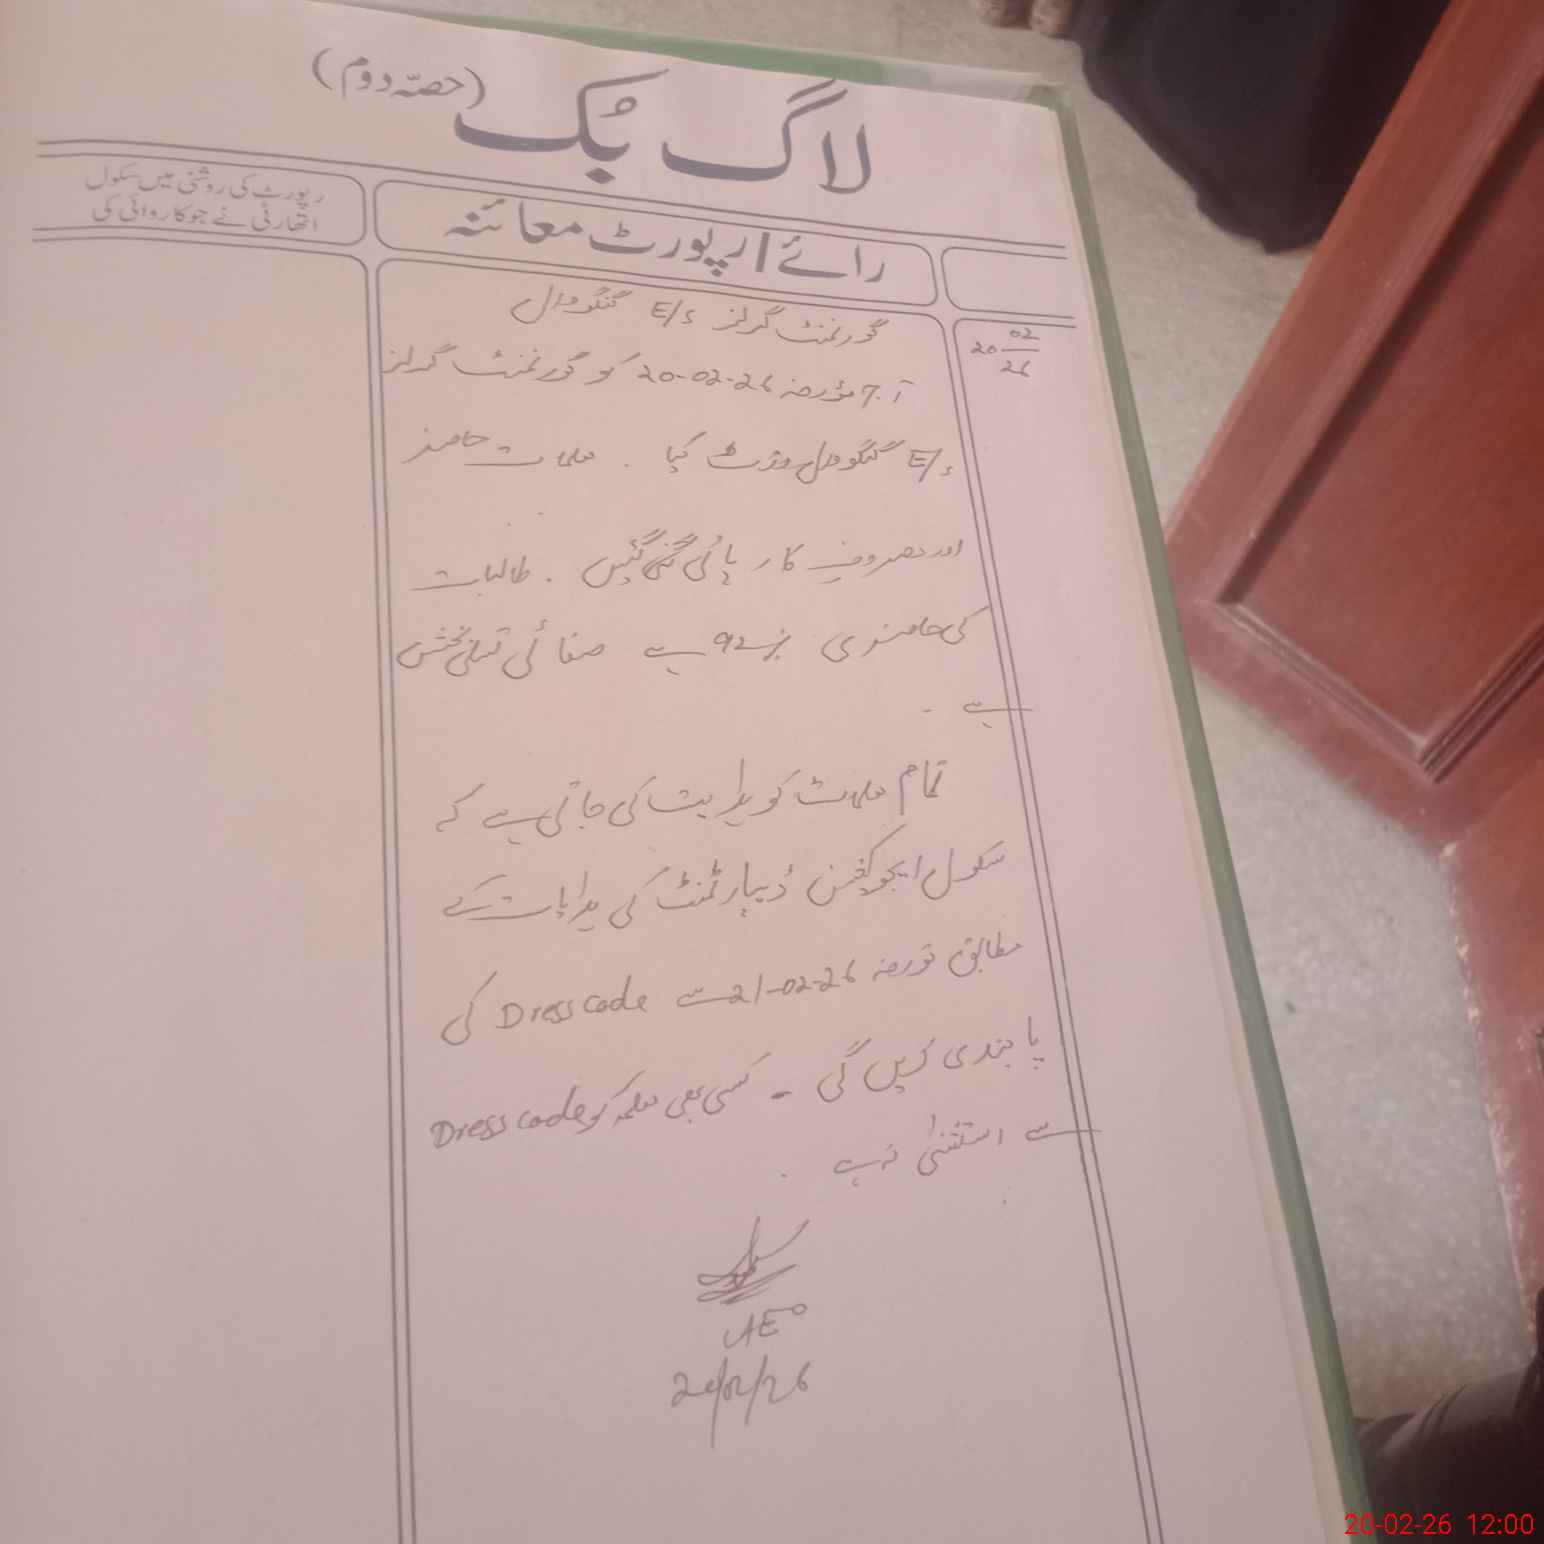 لاگ بُک (حصّہ دوم)
رائے / رپورٹ معائنہ
رپورٹ کی روشنی میں سکول
اتھارٹی نے جو کاروائی کی
20 02/26
گورنمنٹ گرلز E/S گنگوال
آج مؤرخہ 20-02-26 کو گورنمنٹ گرلز
E/S گنگوال وزٹ کیا ۔ معلمات حاضر
اور مصروفِ کار پائی گئیں ۔ طالبات
کی حاضری 92% ہے صفائی تسلی بخش
ہے ۔
تمام معلمات کو ہدایت کی جاتی ہے کہ
سکول ایجوکیشن ڈیپارٹمنٹ کی ہدایات کے
مطابق مورخہ 21-02-26 سے Dress code کی
پابندی کریں گی ۔ کسی بھی معلمہ کو Dress code
سے استثنیٰ نہ ہے ۔
AEO
20/02/26
20-02-26 12:00